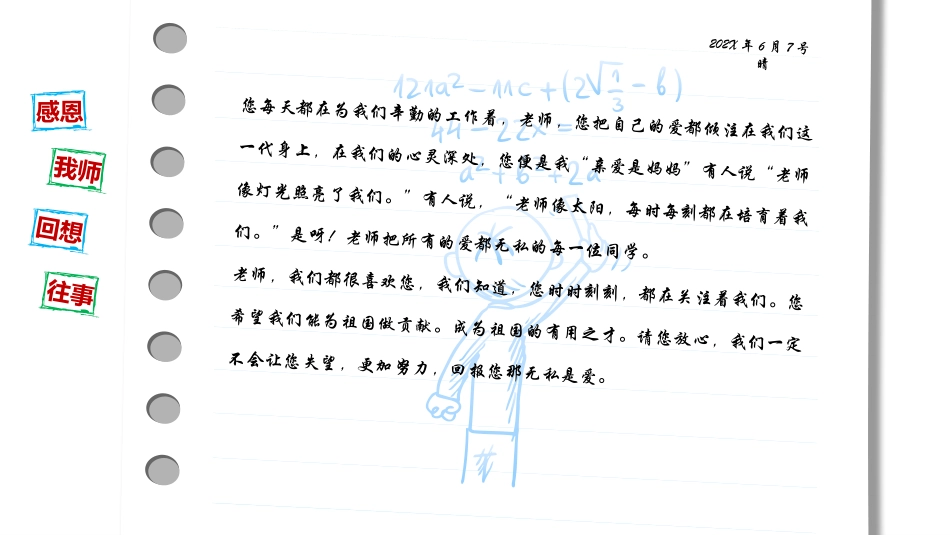 感恩
我师
回想
往事
202X 年 6 月 7 号
晴
121a²-11c+(2√1/3-b)
44-22x=
a²+b²+2a
您每天都在为我们辛勤的工作着，老师，您把自己的爱都倾注在我们这
一代身上，在我们的心灵深处，您便是我“亲爱是妈妈”有人说“老师
像灯光照亮了我们。”有人说，“老师像太阳，每时每刻都在培育着我
们。”是呀！老师把所有的爱都无私的每一位同学。
老师，我们都很喜欢您，我们知道，您时时刻刻，都在关注着我们。您
希望我们能为祖国做贡献。成为祖国的有用之才。请您放心，我们一定
不会让您失望，更加努力，回报您那无私是爱。